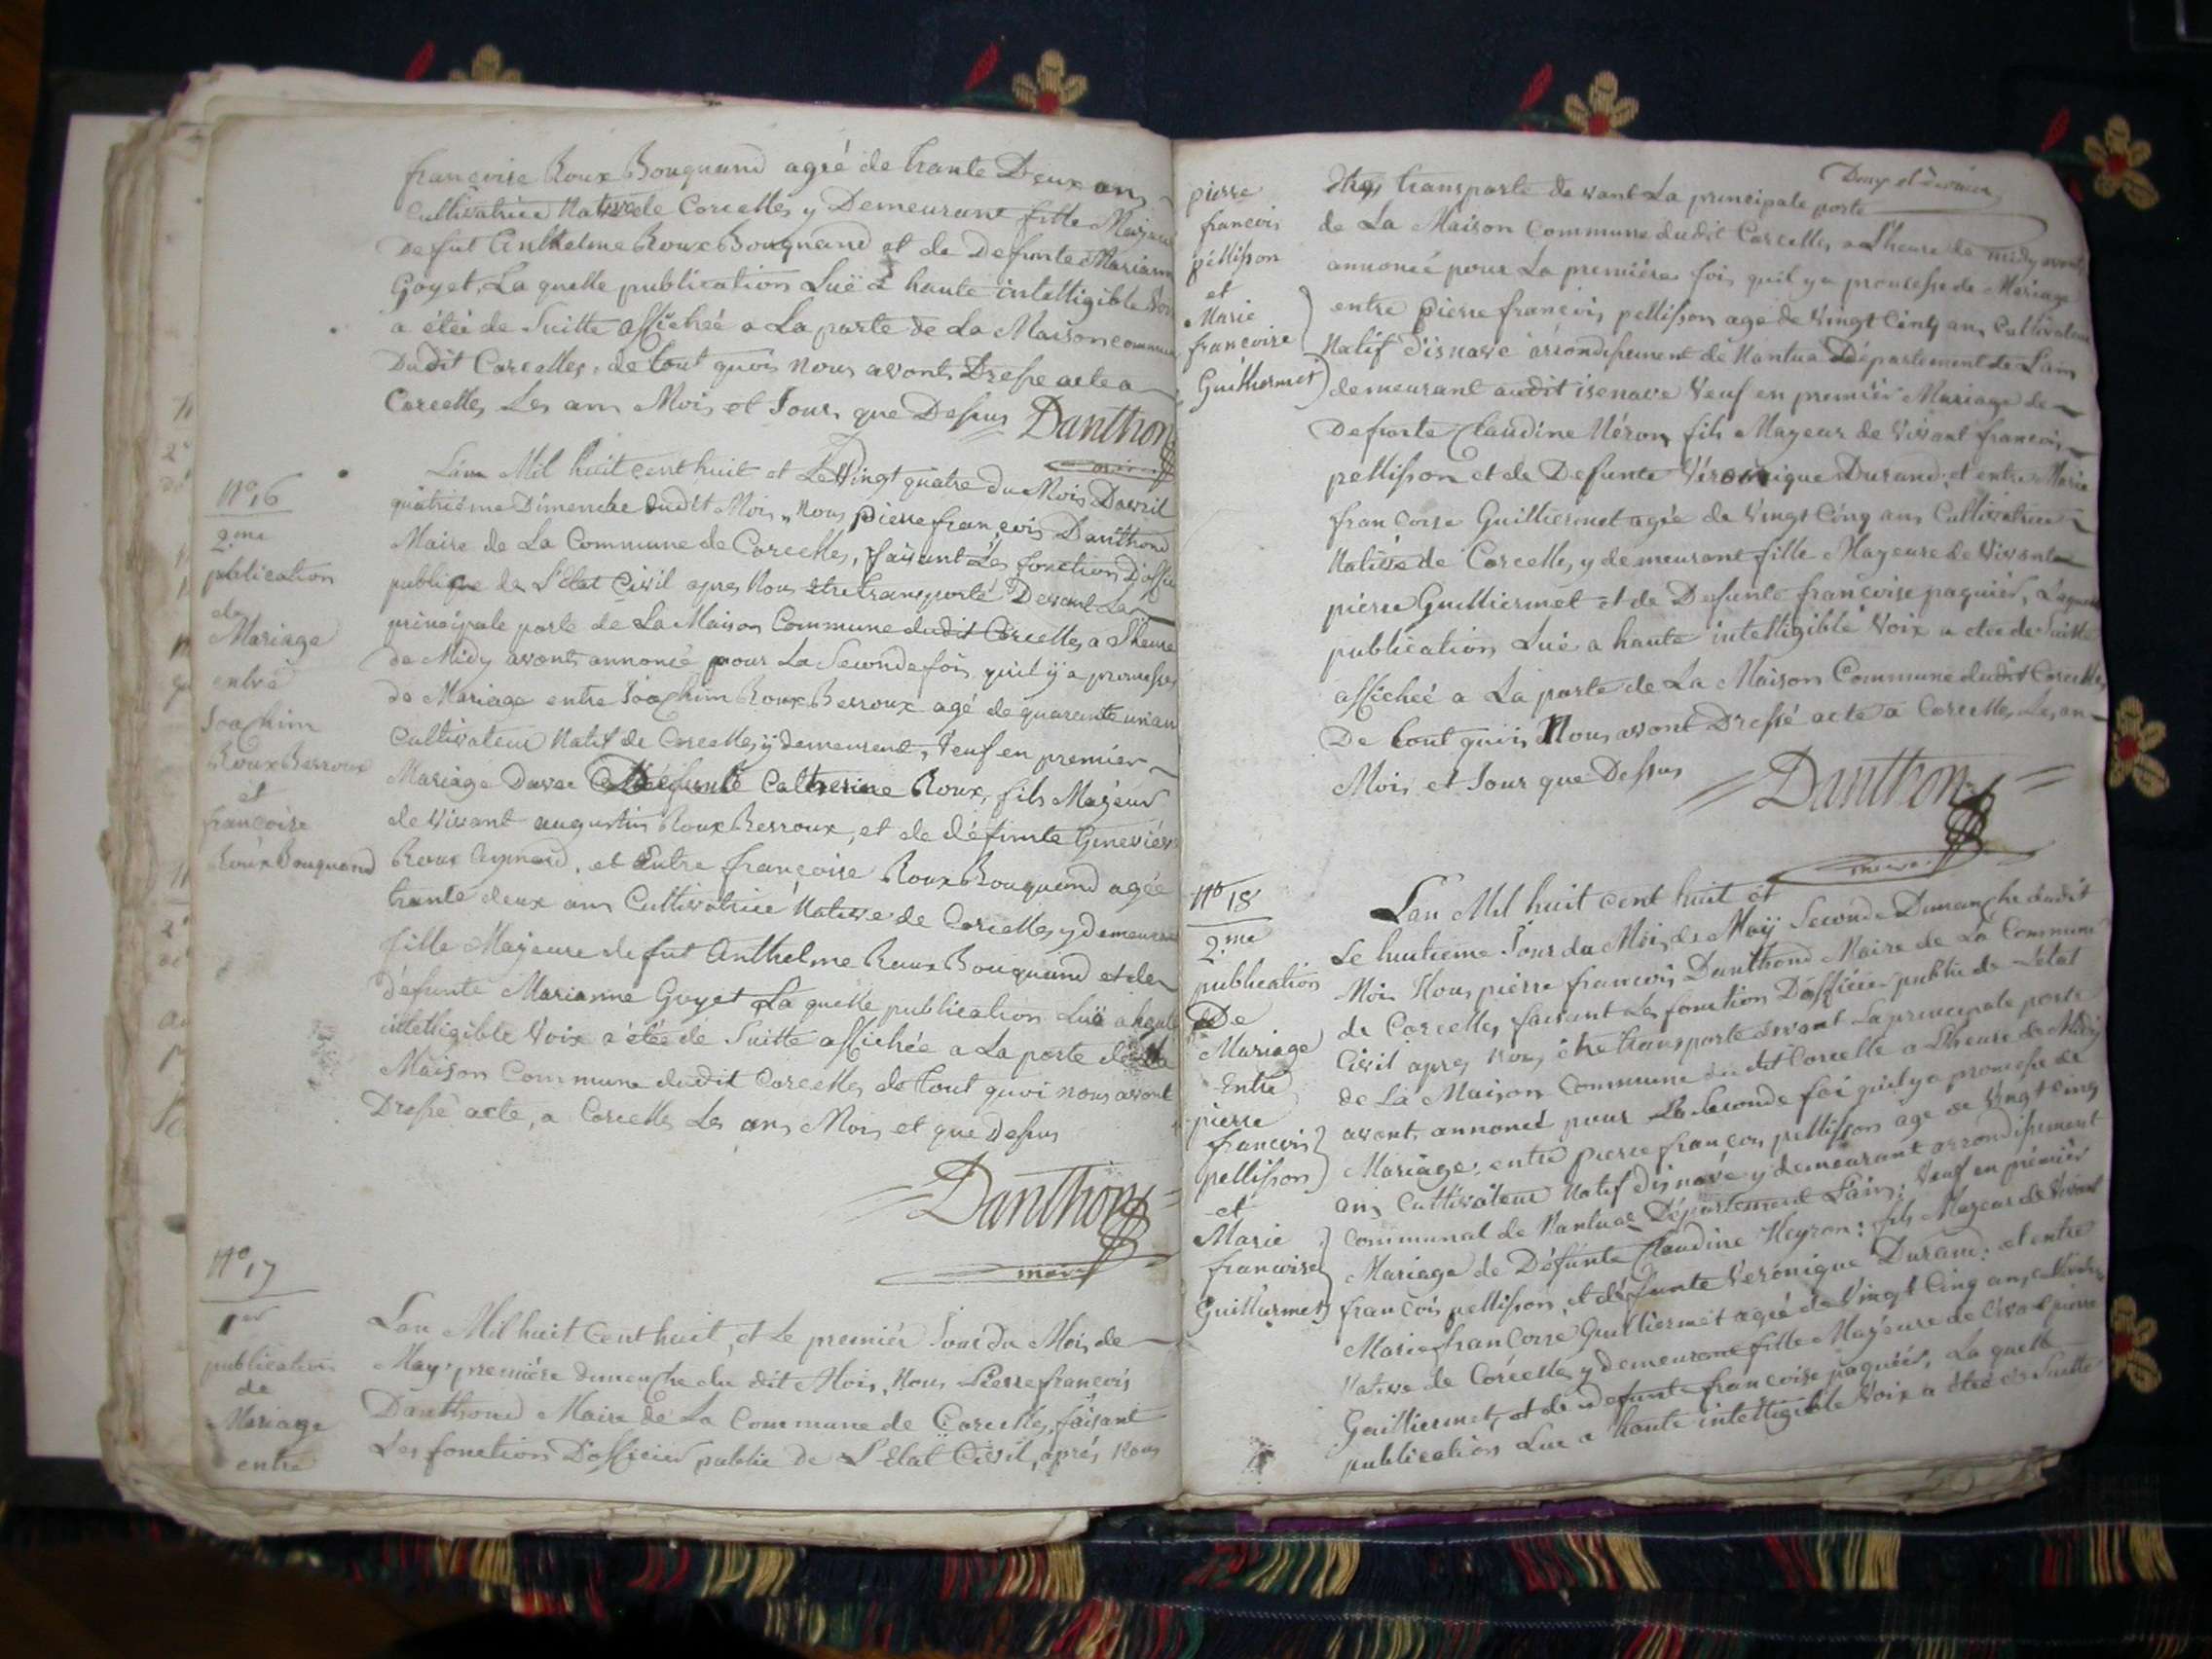 françoise Roux Bouquand agié de trante Deux ans
Cultivatrice Native de Corcelles y Demeurant fille Majeure
De fut Anthelme Roux Bouquand et de Defunte Marianne
Goyet, La quelle publication Luë a haute intelligible Voix
a étéé de Suitte affichéé a La porte de La Maison commune
Dudit Corcelles, de tout quois Nous avonts Dressé acte a
Corcelles Les ans Mois et Jours que Dessus Danthon
maire
N.o 16
2.me
publication
de
Mariage
entre
Joachim
Roux Berroux
et
françoise
Roux Bouquand
Lan Mil huit cent huit et Le Vingt quatre du Mois Davril
quatriéme Dimenche dudit Mois, Nous pierre françois Danthond
Maire de La Commune de Corcelles, faisant Les fonction D'offic
publique de L'Etat Civil apres Nous etre transporté Devant La
principale porte de La Maison Commune dudit Corcelles, a L'heure
de Midy avonts annoncé pour La Seconde fois quil ÿ a promesse
de Mariage entre Joachim Roux Berroux agé de quarante un an
Cultivateur Natif de Corcelles ÿ demeurent, Veuf en premier
Mariage Davec Defunte Catherine Roux, fils Mageur
de Vivant augustin Roux Berroux, et de défunte Geneviév
Roux Aymard, et Entre françoise Roux Bouquand agée
trante deux ans Cultivatrice Native de Corcelles y demeurant
fille Majeure de fut Anthelme Roux Bouquand et de
défunte Marianne Goyet La quelle publication Luë a haute
intelligible Voix a étéé de Suitte affichée a La porte de La
Maison Commune dudit Corcelles de tout quoi nous avont
Dressé acte, a Corcelles Les ans Mois et que Dessus
Danthon
maire
N.o 17
1.er
publication
de
Mariage
entre
Lan Mil huit Cent huit, et Le premiér Jour du Mois de
May, premiére dimenche du dit Mois, Nous Pierre françois
Danthond Maire de La Commune de Corcelles, faisant
Les fonction D'officier public de L'Etat Civil, aprés Nous
pierre
françois
pellisson
et
Marie
françoise
Guilhermet
etre transporte de vant La principale porte
de La Maison Commune dudit Corcelles, a L'heure de midy avont
annoncé pour La premiére fois quil y a promesse de Mariage
entre pierre françois pellisson agé de Vingt Cinq ans Cultivateur
Natif d'isnave arrondissement de Nantua Département de L'ain
demeurant audit isenave Veuf en premiér Mariage de
Defunte Claudine Néron, fils Mageur de Vivant françois
pellisson et de Defunte Véronique Durand, et entre Marie
françoise Guilliermet agée de Vingt Cinq ans Cultivatrice
Native de Corcelles, y demeurant fille Mageure de Vivant
pierre Guilliermet et de Defunte françoise paquiér, Laquelle
publication Lué a haute intelligible Voix a etée de Suitte
affichéé a La porte de La Maison Commune dudit Corcelles,
De tout quois Nous avont Dressé acte a Corcelles, Les, an
Mois et Jour que Dessus
Danthon
maire
N.o 18
2.me
publication
De
Mariage
Entre
pierre
françois
pellisson
et
Marie
françoise
Guillermet
Lan Mil huit cent huit et
Le huitieme Jour du Mois de Maÿ Seconde Dimanche dudit
Mois Nous pierre françois Danthond Maire de La Commune
de Corcelles, faisant Les fonction D'officier public de L'état
Civil apres Nous étre transporté devant La principale porte
de La Maison Commune du dit Corcelle a L'heure de Midy
avont, annoncé pour La Seconde foi quil y a promesse de
Mariage, entre pierre françois pellisson agé de Vingt cinq
ans Cultivateur Natif disnave y demeurant arrondissement
Communal de Nantua Département L'ain, Veuf en premiér
Mariage de Défunte Claudine Neyron: fils Mageur de Vivant
françois pellisson, et défunte Veronique Durand: et entre
Marie françoise Guilliermet agée de Vingt Cinq ans, cultivatrice
Native de Corcelles y demeurant fille Mageure de Vivant pierre
Guilliermet, et de Defunte françoise paquiér, La quelle
publication Lue a haute intelligible Voix a étéé de Suitte